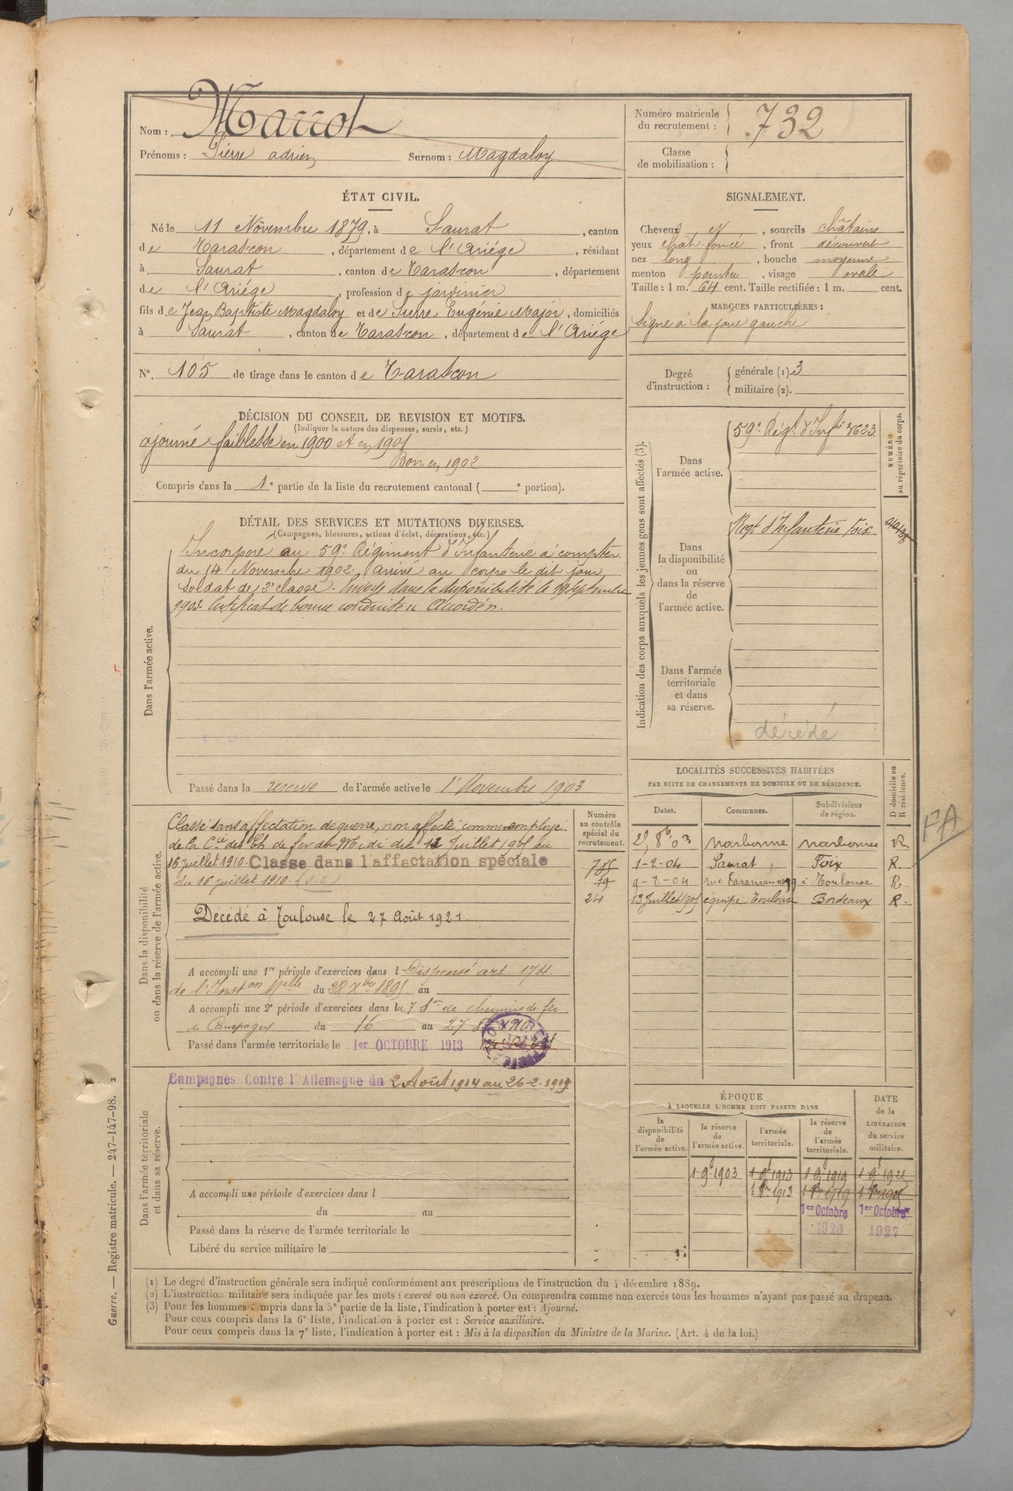 Nom : Marrot
Prénoms : Pierre adrien Surnom : Magdaloy
Numéro matricule du recrutement : 732
Classe de mobilisation :
ÉTAT CIVIL.
Né le 11 Novembre 1879, à Saurat, canton
de Tarascon, département de l'Ariége, résidant
à Saurat, canton de Tarascon, département
de l'Ariége, profession de jardinier
fils de Jean Baptiste Magdaloy et de Eugénie Major, domiciliés
à Saurat, canton de Tarascon, département de l'Ariége
N°. 105 de tirage dans le canton de Tarascon
SIGNALEMENT.
Cheveux et, sourcils châtains
yeux chât. foncé, front découvert
nez long, bouche moyenne
menton pointu, visage ovale
Taille : 1 m. 64 cent. Taille rectifiée : 1 m. cent.
MARQUES PARTICULIÈRES :
Signe à la joue gauche
Degré d'instruction : générale (1). 3
militaire (2).
DÉCISION DU CONSEIL DE REVISION ET MOTIFS.
(Indiquer la nature des dispenses, sursis, etc.)
ajourné faiblesse en 1900 et en 1901
Bon en 1902
Compris dans la 1e partie de la liste du recrutement cantonal ( e portion).
DÉTAIL DES SERVICES ET MUTATIONS DIVERSES.
(Campagnes, blessures, actions d'éclat, décorations, etc.)
Dans l'armée active.
Incorporé au 59e Régiment d'Infanterie à compter
du 14 Novembre 1902, arrivé au corps le dit jour
Soldat de 2e classe. Envoyé dans la disponibilité le 19 Septembre
1903 Certificat de bonne conduite Accordé.
Passé dans la reserve de l'armée active le 1r Novembre 1903
Indication des corps auxquels les jeunes gens sont affectés (3).
NUMÉRO au répertoire du corps.
Dans l'armée active.
59e Régt d'Infie 7623
Dans la disponibilité ou dans la réserve de l'armée active.
Regt d'Infanterie Foix
Dans l'armée territoriale et dans sa réserve.
décédé
Dans la disponibilité ou dans la réserve de l'armée active.
Classé dans affectation de guerre, non affecté, comme employé
de la Cie des Ch. de fer du Midi du 12 Juillet 1905 au
16 juillet 1910. Classe dans l'affectation spéciale
du 16 juillet 1910.
Décédé à Toulouse le 27 Août 1921
A accompli une 1re période d'exercices dans l Dispensé art. 174
de l'Inston Melle du 28 Xbre 1895 au
A accompli une 2e période d'exercices dans la 7 Son de chemins de fer
de Campagne du 16 au 27
Passé dans l'armée territoriale le 1er OCTOBRE 1913
Numéro au contrôle spécial du recrutement.
785
19
24
LOCALITÉS SUCCESSIVES HABITÉES
PAR SUITE DE CHANGEMENTS DE DOMICILE OU DE RÉSIDENCE.
Dates. Communes. Subdivisions de région. D domicile ou R résidence.
narbonne narbonne R
1-2-04 Saurat Foix R.
9-8-04 rue à Toulouse R.
13 Juillet 1905 équipe Toulouse Bordeaux R.
FA
Dans l'armée territoriale et dans sa réserve.
Campagnes Contre l'Allemagne du 2 Août 1914 au 26-2-1919
A accompli une période d'exercices dans l
du au
Passé dans la réserve de l'armée territoriale le
Libéré du service militaire le
ÉPOQUE
A LAQUELLE L'HOMME DOIT PASSER DANS
DATE de la LIBÉRATION du service militaire.
la disponibilité de l'armée active. la réserve de l'armée active. l'armée territoriale. la réserve de l'armée territoriale.
1-9bre 1903 1 9bre 1913 1 9bre 1919
1er Octobre 1920 1er Octobre 1927
(1) Le degré d'instruction générale sera indiqué conformément aux prescriptions de l'instruction du 4 décembre 1889.
(2) L'instruction militaire sera indiquée par les mots : exercé ou non exercé. On comprendra comme non exercés tous les hommes n'ayant pas passé au drapeau.
(3) Pour les hommes compris dans la 5e partie de la liste, l'indication à porter est : Ajourné.
Pour ceux compris dans la 6e liste, l'indication à porter est : Service auxiliaire.
Pour ceux compris dans la 7e liste, l'indication à porter est : Mis à la disposition du Ministre de la Marine. (Art. 4 de la loi.)
Guerre. — Registre matricule. — 247-147-98.